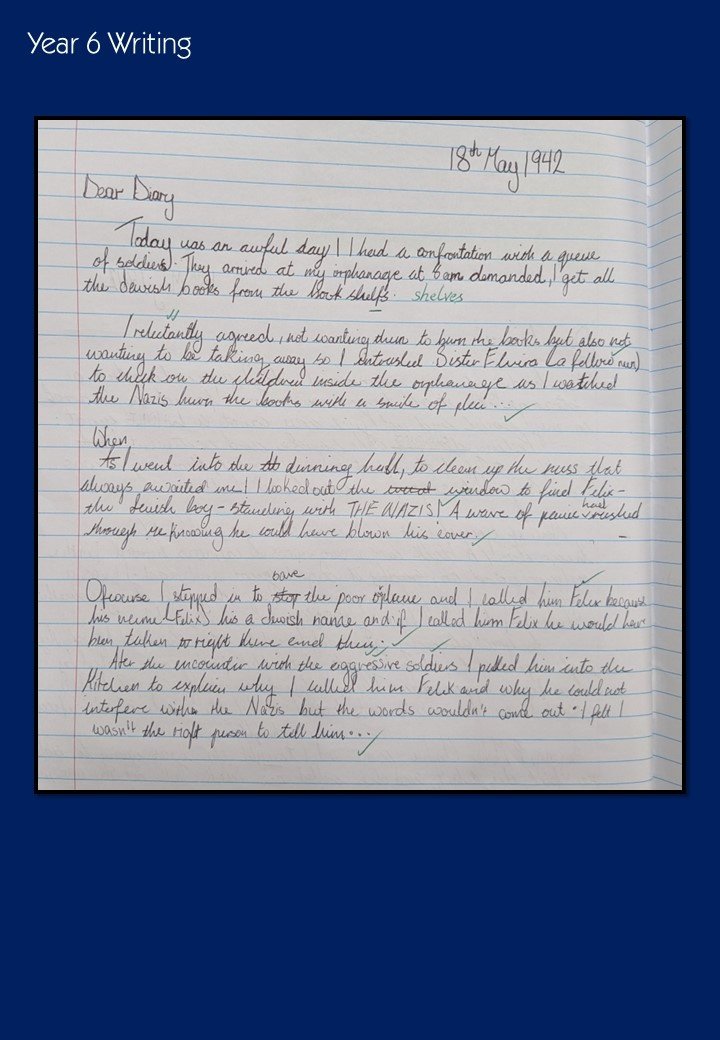 Year 6 Writing
18th May 1942
Dear Diary
Today was an awful day! I had a confrontation with a queue
of soldiers. They arrived at my orphanage at 6am demanded, I get all
the Jewish books from the book shelfs. shelves
I reluctantly agreed, not wanting them to burn the books but also not
wanting to be taking away so I entrusted Sister Elvira (a fellow nun)
to check on the children inside the orphanage as I watched
the Nazis burn the books with a smile of glee...
When
As I went into the dinning hall, to clean up the mess that
always awaited me! I looked out the window to find Felix-
the Jewish boy-standing with THE NAZIS! A wave of panic had rushed
through me knowing he could have blown his cover.
save
Ofcourse I stepped in to stop the poor and I called him Felek because
his name (Felix) his a Jewish name and if I called him Felix he would have
been taken right there and then.
After the encounter with the aggressive soldiers I pulled him into the
Kitchen to explain why I called him Felek and why he could not
interfere withe the Nazis but the words wouldn't come out. I felt I
wasn't the right person to tell him...